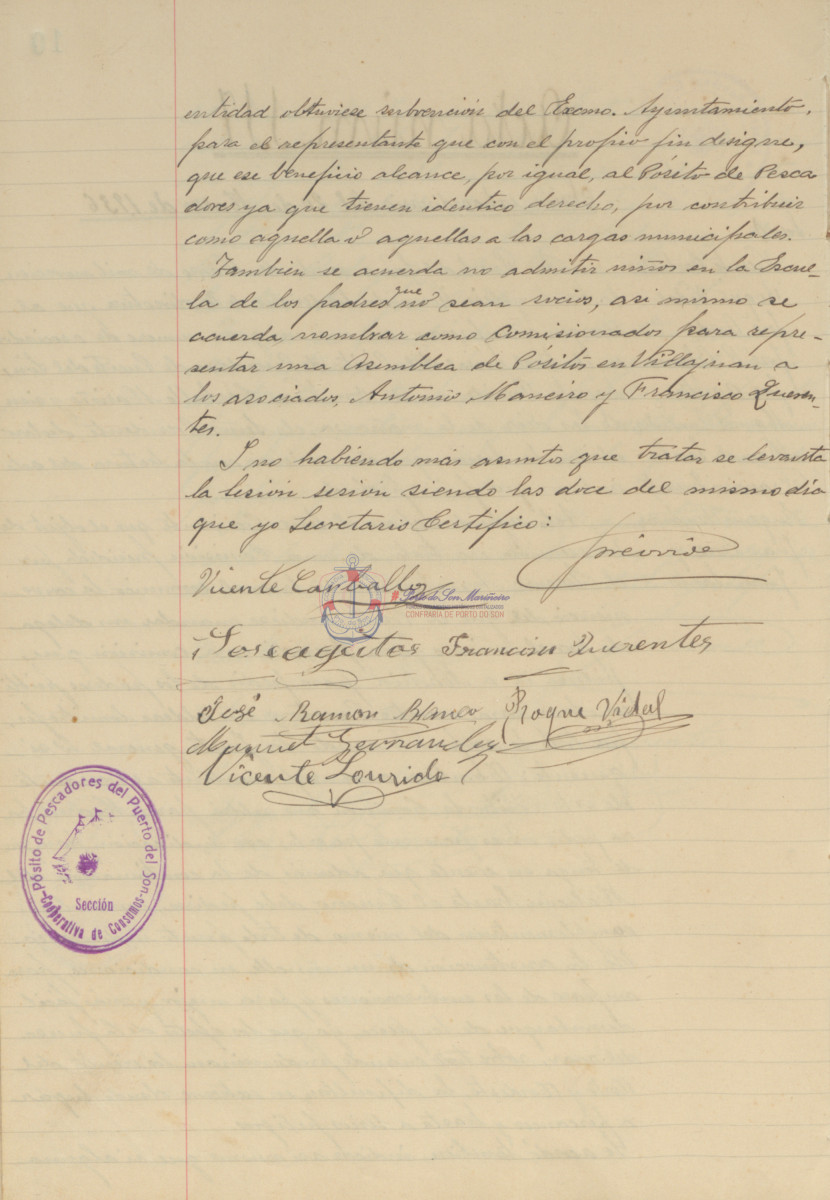 entidad obtuviese subvención del Excmo. Ayuntamiento,
para el representante que con el propio fin designe,
que ese beneficio alcance, por igual, al Pósito de Pesca
dores ya que tienen identico derecho, por contribuir
como aquella o aquellas a las cargas municipales.
Tambien se acuerda no admitir niños en la Escue-
la de los padres que no sean socios, asi mismo se
acuerda nombrar como Comisionados para repre-
sentar una Asemblea de Pósitos en Villajuan a
los asociados, Antonio Maneiro y Francisco Queren-
tes.
I no habiendo más asuntos que tratar se levanta
la sesión sesión siendo las doce del mismo día
que yo Secretario Certifico:
Vicente Carballo
Porto do Son Mariñeiro
CONFRARÍA DE PORTO DO SON
Francisco Querentes
José Ramon Blanco Roque Vidal
Manuel Fernandez
Vicente Lourido
Pósito de Pescadores del Puerto del Son
Sección
Cooperativa de Consumos